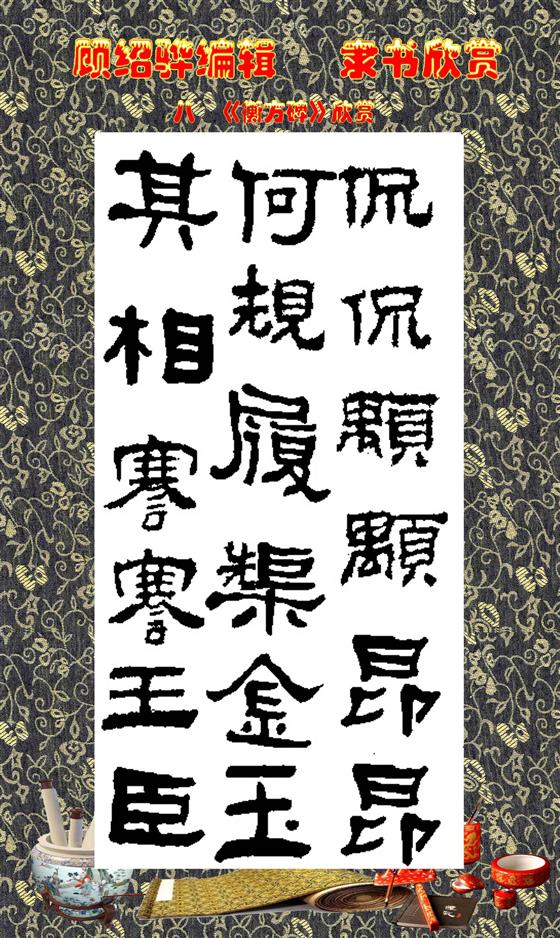 顾绍骅编辑 隶书欣赏
八 《衡方碑》欣赏
侃侃顒顒昂昂
何規履榘金玉
其相謇謇王臣